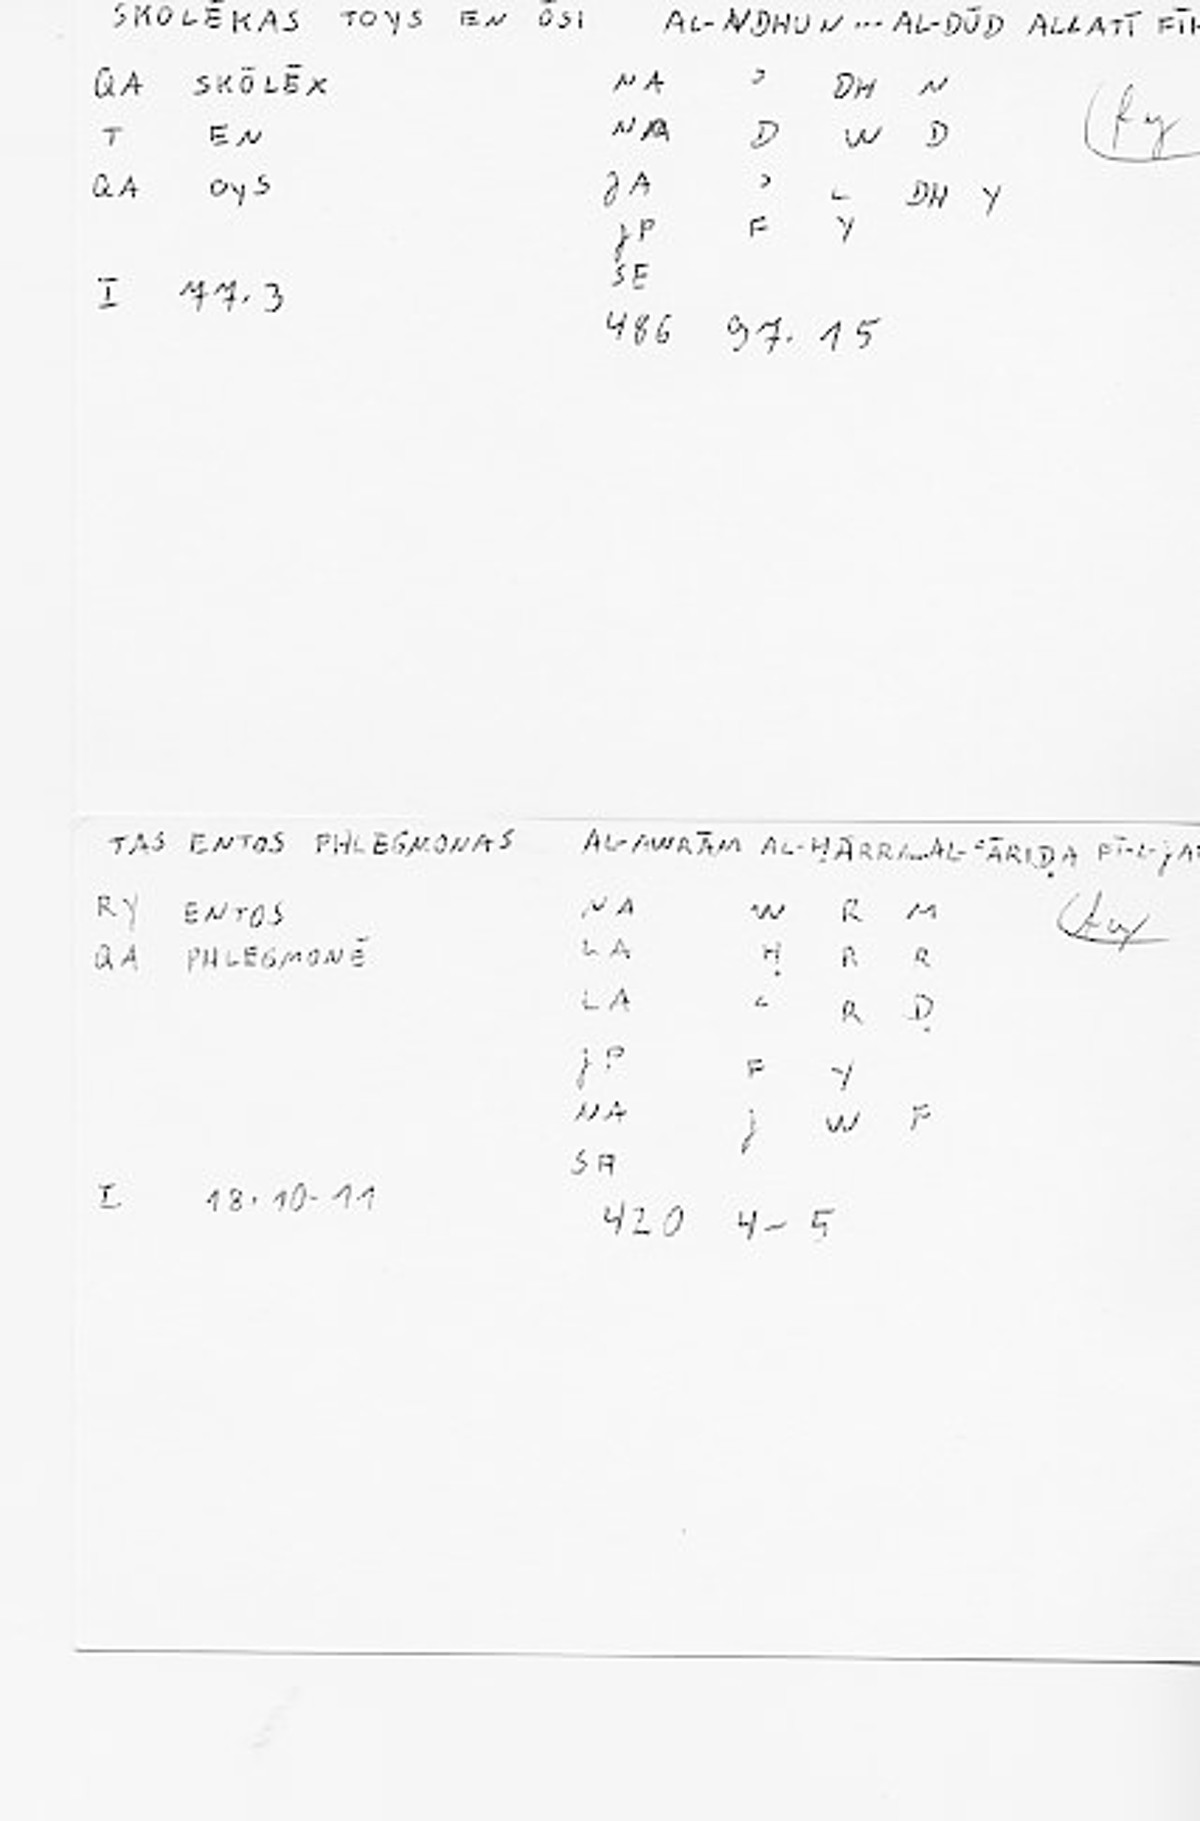 SKOLĒKAS TOYS EN ŌSI AL-ADHUN... AL-DŪD ALLATĪ FĪH
QA SKŌLĒX NA ʾ DH N
T EN NA D W D
QA OYS JA ʾ L DH Y
JP F Y
SE
I 77.3
486 97.15
TAS ENTOS PHLEGMONAS AL-AWRĀM AL-ḤĀRRA...AL-ʿĀRIḌA FĪ-L-JA
RY ENTOS NA W R M
QA PHLEGMONĒ LA Ḥ R R
LA ʿ R Ḍ
JP F Y
NA J W F
SA
I 18.10-11
420 4-5